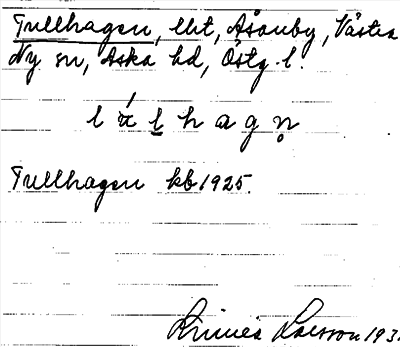 Tullhagen, lht, Åsanby, Västra
Ny sn, Aska hd, Östg. l.
Tullhagen kb 1925.
Linnéa Larsson 193